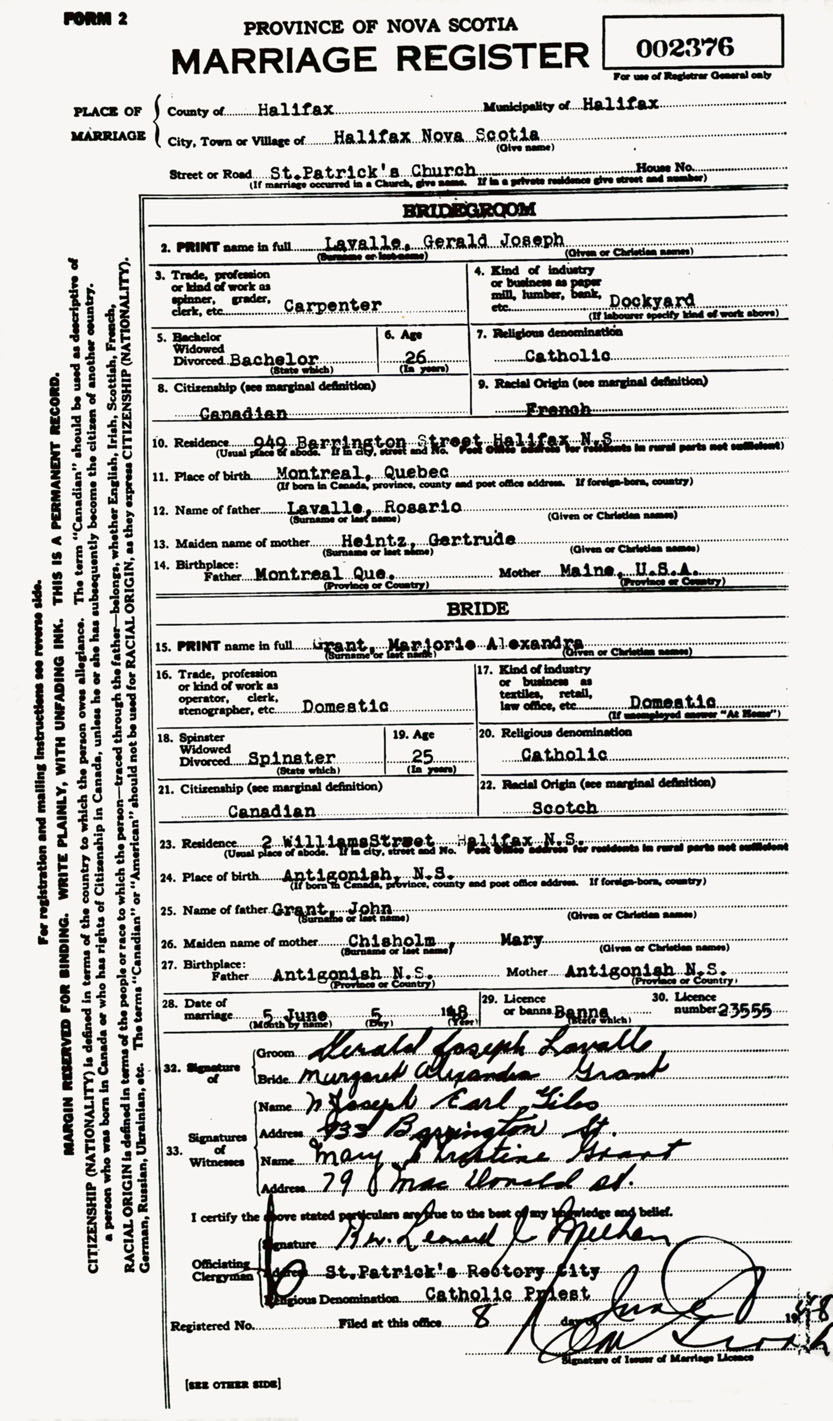 FORM 2
PROVINCE OF NOVA SCOTIA
MARRIAGE REGISTER
002376
For use of Registrar General only
PLACE OF MARRIAGE
County of Halifax Municipality of Halifax
City, Town or Village of Halifax Nova Scotia
(Give name)
Street or Road St.Patrick's Church House No.
(If marriage occurred in a Church, give name. If in a private residence give street and number)
BRIDEGROOM
2. PRINT name in full Lavalle, Gerald Joseph
(Surname or last name) (Given or Christian names)
3. Trade, profession or kind of work as spinner, grader, clerk, etc. Carpenter
4. Kind of industry or business as paper mill, lumber, bank, etc. Dockyard
(If labourer specify kind of work above)
5. Bachelor Widowed Divorced Bachelor
(State which)
6. Age 26
(In years)
7. Religious denomination Catholic
8. Citizenship (see marginal definition) Canadian
9. Racial Origin (see marginal definition) French
10. Residence 949 Barrington Street Halifax N.S
(Usual place of abode. If in city, street and No. Post Office address for residents in rural parts not sufficient)
11. Place of birth Montreal, Quebec
(If born in Canada, province, county and post office address. If foreign-born, country)
12. Name of father Lavalle, Rosario
(Surname or last name) (Given or Christian names)
13. Maiden name of mother Heintz, Gertrude
(Surname or last name) (Given or Christian names)
14. Birthplace: Father Montreal Que. Mother Maine, U.S.A.
(Province or Country) (Province or Country)
BRIDE
15. PRINT name in full Grant, Marjorie Alexandra
(Surname or last name) (Given or Christian names)
16. Trade, profession or kind of work as operator, clerk, stenographer, etc. Domestic
17. Kind of industry or business as textiles, retail, law office, etc. Domestic
(If unemployed answer "At Home")
18. Spinster Widowed Divorced Spinster
(State which)
19. Age 25
(In years)
20. Religious denomination Catholic
21. Citizenship (see marginal definition) Canadian
22. Racial Origin (see marginal definition) Scotch
23. Residence 2 WilliamsStreet Halifax N.S.
(Usual place of abode. If in city, street and No. Post Office address for residents in rural parts not sufficient
24. Place of birth Antigonish, N.S.
(If born in Canada, province, county and post office address. If foreign-born, country)
25. Name of father Grant, John
(Surname or last name) (Given or Christian names)
26. Maiden name of mother Chisholm, Mary
(Surname or last name) (Given or Christian names)
27. Birthplace: Father Antigonish N.S. Mother Antigonish N.S.
(Province or Country) (Province or Country)
28. Date of marriage 5 June 5 1948
(Month by name) (Day) (Year)
29. Licence or banns Banns
(State which)
30. Licence number 23555
32. Signature of
Groom Gerald Joseph Lavalle
Bride Margaret Alexandra Grant
33. Signatures of Witnesses
Name Joseph Earl Giles
Address 933 Barrington St.
Name Mary Christine Grant
Address 79 MacDonald St.
I certify the above stated particulars are true to the best of my knowledge and belief.
Officiating Clergyman
Signature Rev. Leonard J Meehan
Address St.Patrick's Rectory City
Religious Denomination Catholic Priest
Registered No. Filed at this office 8 day of June 1948
Signature of Issuer of Marriage Licence
[SEE OTHER SIDE]
For registration and mailing instructions see reverse side.
MARGIN RESERVED FOR BINDING. WRITE PLAINLY, WITH UNFADING INK. THIS IS A PERMANENT RECORD.
CITIZENSHIP (NATIONALITY) is defined in terms of the country to which the person owes allegiance. The term "Canadian" should be used as descriptive of
a person who was born in Canada or who has rights of Citizenship in Canada, unless he or she has subsequently become the citizen of another country.
RACIAL ORIGIN is defined in terms of the people or race to which the person—traced through the father—belongs, whether English, Irish, Scottish, French,
German, Russian, Ukrainian, etc. The terms "Canadian" or "American" should not be used for RACIAL ORIGIN, as they express CITIZENSHIP (NATIONALITY).